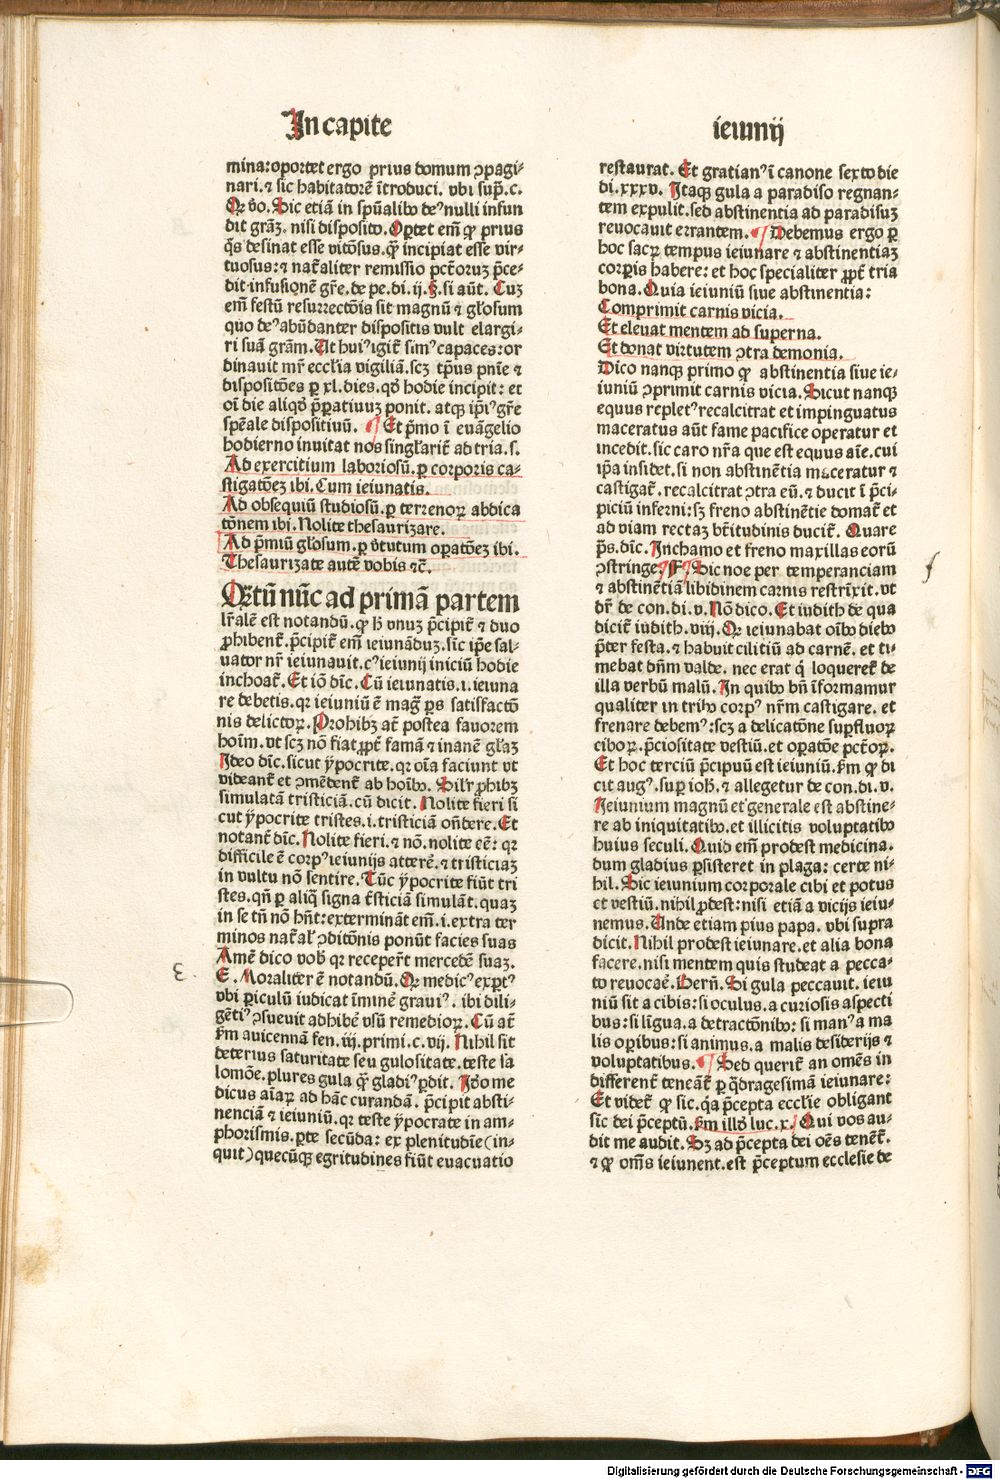 In capite
ieiunij
mina: oportet ergo prius domum ꝯpagi-
nari. ⁊ sic habitatorē ītroduci. vbi suꝑ. c.
Qꝛ v̄o. Sic etiā in spūalibꝰ deꝰ nulli infun
dit grāꝫ. nisi disposito. Oꝑtet em̄ ꝙ prius
q̄s desinat esse vitōsus. q̄ꝫ incipiat esse vir-
tuosus: ⁊ nat̄aliter remissio pct̄oruꝫ p̄ce-
dit infusionē gr̄e. de pe. di. ij. §. si aūt. Cuꝫ
em̄ festū resurrectōis sit magnū ⁊ gl̄osum
quo deꝰ abūdanter dispositis vult elargi-
ri suā grām. Ut huiꝰ igit̄ simꝰ capaces: or
dinauit mr̄ eccl̄ia vigiliā. scꝫ tp̄us pn̄ie ⁊
dispositōes ꝑ xl. dies. qd̄ hodie incipit: et
oī die aliqd̄ p̄paratiuuꝫ ponit. atqꝫ ip̄iꝰ gr̄e
spēale dispositiuū. ¶ Et p̄mo ī euāgelio
hodierno inuitat nos singl̄arit̄ ad tria. s.
Ad exercitium laboriosū. ꝑ corporis ca-
stigatōeꝫ ibi. Cum ieiunatis.
Ad obsequiū studiosū. ꝑ terrenoꝝ abdica
tōnem ibi. Nolite thesaurizare.
Ad p̄miū gl̄osum. ꝑ v̄tutum oꝑatōeꝫ ibi.
Thesaurizate autē vobis ⁊c̄.
Qꝫtū nūc ad primā partem
lr̄alē est notandū. ꝙ hꝰ vnuꝫ p̄cipit̄ ⁊ duo
ꝓhibent̄. p̄cipit̄ em̄ ieiunāduꝫ. sic̄ ip̄e sal-
uator nr̄ ieiunauit. cꝰ ieiunij iniciū hodie
inchoat̄. Et iō dīc. Cū ieiunatis. i. ieiuna
re debetis. qꝛ ieiuniū ē mag̃ ꝑs satisfactō
nis delictoꝝ. Prohibꝫ at̄ postea fauorem
hoīm. vt scꝫ nō fiat ꝓpt̄ famā ⁊ inanē gl̄aꝫ
Ideo dīc. sicut ẏpocrite. qꝛ oīa faciunt vt
videant̄ et ꝯmēdent̄ ab hoībꝰ. Silr̄ ꝓhibꝫ
simulatā tristiciā. cū dicit. Nolite fieri si
cut ẏpocrite tristes. i. tristiciā on̄dere. Et
notant̄ dīc. Nolite fieri. ⁊ nō. nolite eē: qꝛ
difficile ē corpꝰ ieiunijs atterē. ⁊ tristiciaꝫ
in vultu nō sentire. Tūc ẏpocrite fiūt tri
stes. qn̄ ꝑ aliq̄ signa t̄sticiā simulāt. quaꝫ
in se tn̄ nō hn̄t: extermināt em̄. i. extra ter
minos nat̄al' ꝯditōnis ponūt facies suas
Amē dico vob̄ qꝛ receper̄t mercedē suaꝫ.
E. Moraliter ē notandū. Qꝛ medicꝰ exꝑtꝰ
vbi ꝑiculū iudicat īminē grauiꝰ. ibi dili-
gētiꝰ ꝯsueuit adhibē vsū remedioꝝ. Cū at̄
ẜm auicennā fen. iij. primi. c. vij. Nihil sit
deterius saturitate seu gulositate. teste sa
lomōe. plures gula q̄ꝫ gladiꝰ ꝑdit. Id̄o me
dicus aīaꝝ ad hāc curandā. p̄cipit absti-
nenciā ⁊ ieiuniū. qꝛ teste ẏpocrate in am-
phorismis. ꝑte secūda: ex plenitudīe (in-
quit) quecūqꝫ egritudines fiūt euacuatio
restaurat. Et gratianꝰ ī canone sexto die
di. xxxv. Itaqꝫ gula a paradiso regnan-
tem expulit. sed abstinentia ad paradisuꝫ
reuocauit errantem. ¶ Debemus ergo ꝑ
hoc sacꝝ tempus ieiunare ⁊ abstinentiaꝫ
corꝑis habere: et hoc specialiter ꝓpt̄ tria
bona. Quia ieiuniū siue abstinentia:
Comprimit carnis vicia.
Et eleuat mentem ad superna.
Et donat virtutem ꝯtra demonia.
Dico nanqꝫ primo ꝙ abstinentia siue ie-
iuniū ꝯprimit carnis vicia. Sicut nanqꝫ
equus repletꝰ recalcitrat et impinguatus
maceratus aūt fame pacifice operatur et
incedit. sic caro nr̄a que est equus aīe. cui
ip̄a insidet. si non abstinētia maceratur ⁊
castigat̄. recalcitrat ꝯtra eū. ⁊ ducit ī p̄ci-
piciū inferni: sꝫ freno abstinētie domat̄ et
ad viam rectaꝫ bt̄itudinis ducit̄. Quare
p̄s. dīc. Inchamo et freno maxillas eorū
ꝯstringe. ¶ F ¶ Sic noe per temperanciam
⁊ abstinētiā libidinem carnis restrīxit. vt
dr̄ de con. di. v. Nō dico. Et iudith de qua
dicit̄ iudith. viij. Qꝛ ieiunabat oībꝰ diebꝰ
p̄ter festa. ⁊ habuit cilitiū ad carnē. et ti-
mebat dn̄m valde. nec erat q̇ loqueret̄ de
illa verbū malū. In quibꝰ bn̄ īformamur
qualiter in tribꝰ corpꝰ nr̄m castigare. et
frenare debemꝰ: scꝫ a delicatōne suꝑfluoꝝ
ciboꝝ. p̄ciositate vestiū. et oꝑatōe pct̄oꝝ.
Et hoc terciū p̄cipuū est ieiuniū. ẜm ꝙ di
cit augꝰ. suꝑ ioh̄. ⁊ allegetur de con. di. v.
Ieiunium magnū et generale est abstine-
re ab iniquitatibꝰ. et illicitis voluptatibꝰ
huius seculi. Quid em̄ prodest medicina.
dum gladius ꝑsisteret in plaga: certe ni-
hil. Sic ieiunium corporale cibi et potus
et vestiū. nihil ꝓdest: nisi etiā a vicijs ieiu-
nemus. Unde etiam pius papa. vbi supra
dicit. Nihil prodest ieiunare. et alia bona
facere. nisi mentem quis studeat a pecca-
to reuocaē. Bern̄. Si gula peccauit. ieiu
niū sit a cibis: si oculus. a curiosis aspecti
bus: si līgua. a detractōnibꝰ: si manꝰ a ma
lis oꝑibus: si animus. a malis desiderijs ⁊
voluptatibus. ¶ Sed querit̄ an omēs in
different̄ teneāt̄ ꝑ q̄dragesimā ieiunare:
Et videt̄ ꝙ sic. q̇a p̄cepta eccl̄ie obligant
sic dei p̄ceptū. ẜm illd̄ luc. x. Qui vos au-
dit me audit. Sꝫ ad p̄cepta dei oēs tenēt̄.
⁊ ꝙ om̄s ieiunent. est p̄ceptum ecclesie de
Digitalisierung gefördert durch die Deutsche Forschungsgemeinschaft - DFG